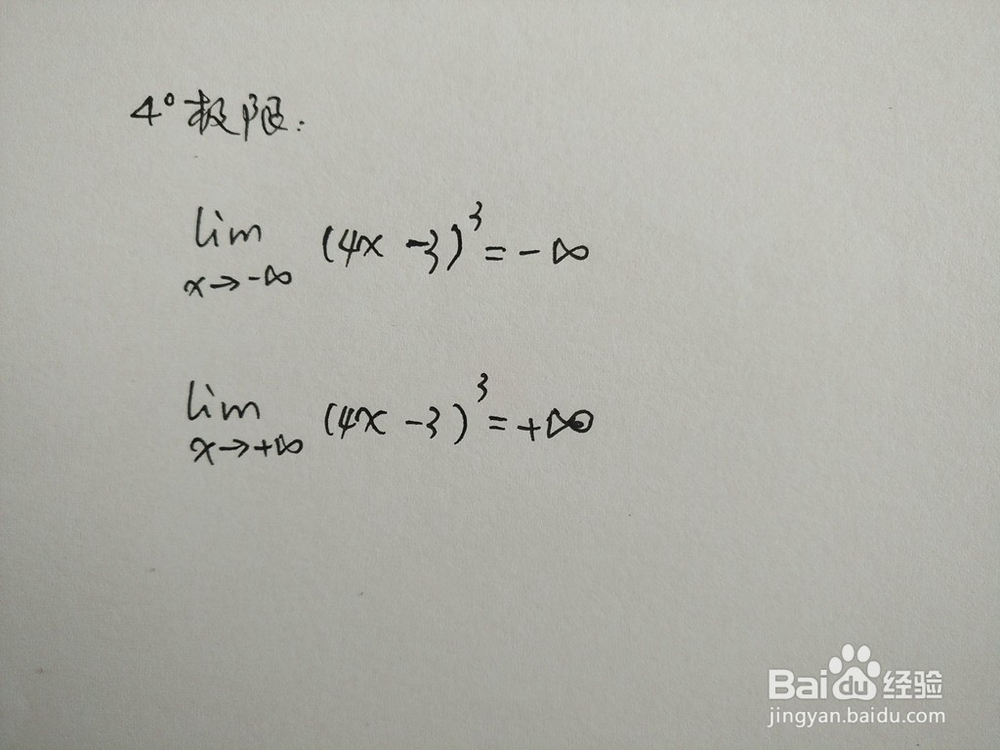 4°极限:
lim (4x-3)³=-∞
x→-∞
lim (4x-3)³=+∞
x→+∞
Baidu经验
jingyan.baidu.com